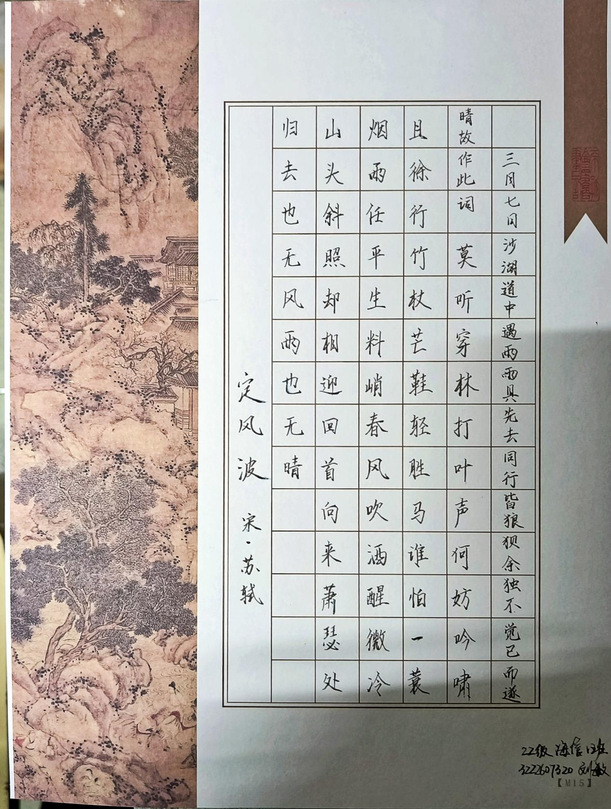 三月七日沙湖道中遇雨雨具先去同行皆狼狈余独不觉已而遂
晴故作此词莫听穿林打叶声何妨吟啸
且徐行竹杖芒鞋轻胜马谁怕一蓑
烟雨任平生料峭春风吹酒醒微冷
山头斜照却相迎回首向来萧瑟处
归去也无风雨也无晴
定风波 宋·苏轼
22级海信口班
3222607320 刘敏
【M15】